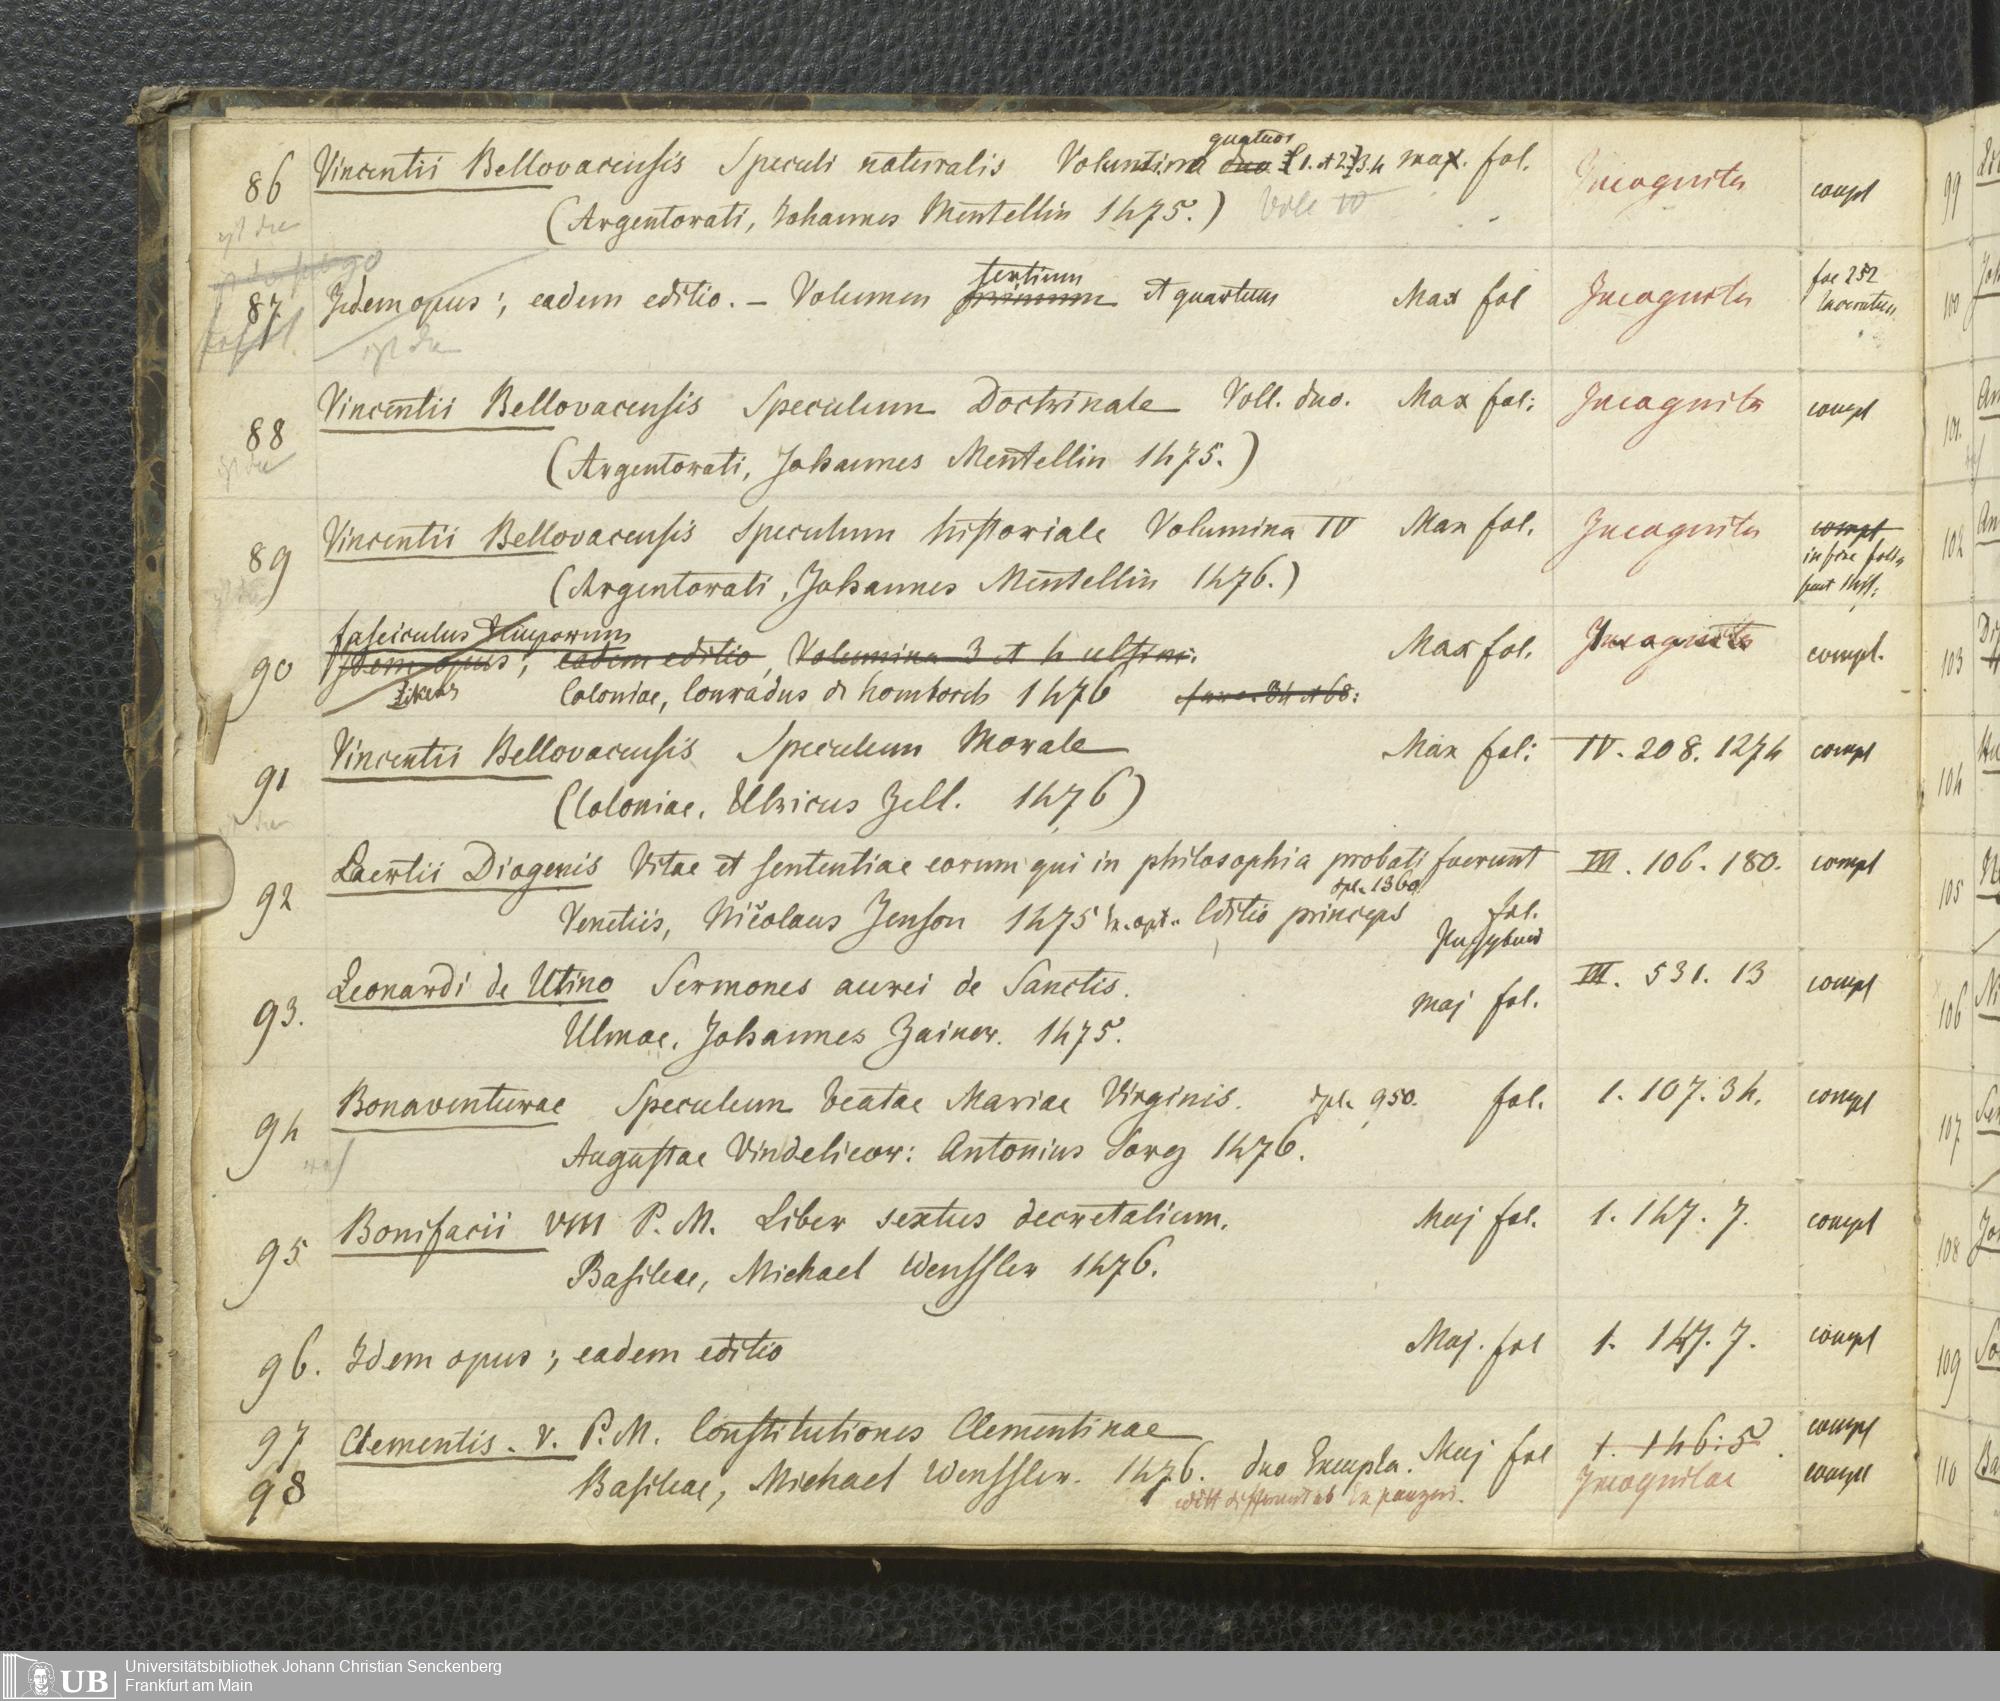 86 Vincentii Bellovacensis Speculi naturalis Volumina duo quatuor 1. et 2. 3. 4 max. fol. Incognita compl
(Argentorati, Johannes Mentellin 1475.) Voll IV
87 Idem opus; eadem editio. — Volumen primum tertium et quartum Max fol Incognita fol 252 laceratum
88 Vincentii Bellovacensis Speculum Doctrinale Voll. duo. Max fol: Incognita compl
(Argentorati, Johannes Mentellin 1475.)
89 Vincentii Bellovacensis Speculum historiale Volumina IV Max fol. Incognita compl
(Argentorati, Johannes Mentellin 1476.)
fasciculus temporum
90 Idem opus; eadem editio, Volumina 3 et 4 ultim: Max fol. Incognita compl.
Coloniae, Conradus de homborch 1476
91 Vincentii Bellovacensis Speculum Morale Max fol: IV. 208. 1274 compl
(Coloniae. Ulricus Zell. 1476)
92 Laertii Diogenis Vitae et sententiae eorum qui in philosophia probati fuerunt III. 106. 180. compl
Venetiis, Nicolaus Jenson 1475 Editio princeps dpl. 1360 fol.
93. Leonardi de Utino Sermones aurei de Sanctis. maj fol. III. 531. 13 compl
Ulmae. Johannes Zainer. 1475.
94 Bonaventurae Speculum beatae Mariae Virginis. dpl. 950. fol. 1. 107. 34. compl
Augustae Vindelicor: Antonius Sorg 1476.
95 Bonifacii VIII P. M. Liber sextus decretalium. Maj fol. 1. 147. 7. compl
Basileae, Michael Wenssler 1476.
96. Idem opus; eadem editio Maj. fol 1. 147. 7. compl
97 Clementis. V. P. M. Constitutiones Clementinae Maj fol 1. 146. 5. compl
98 Basileae, Michael Wenssler. 1476. duo Exempla. Incognitae compl
99
100
101.
102
103
104
105
106
107
108
109
110
UB
Universitätsbibliothek Johann Christian Senckenberg
Frankfurt am Main